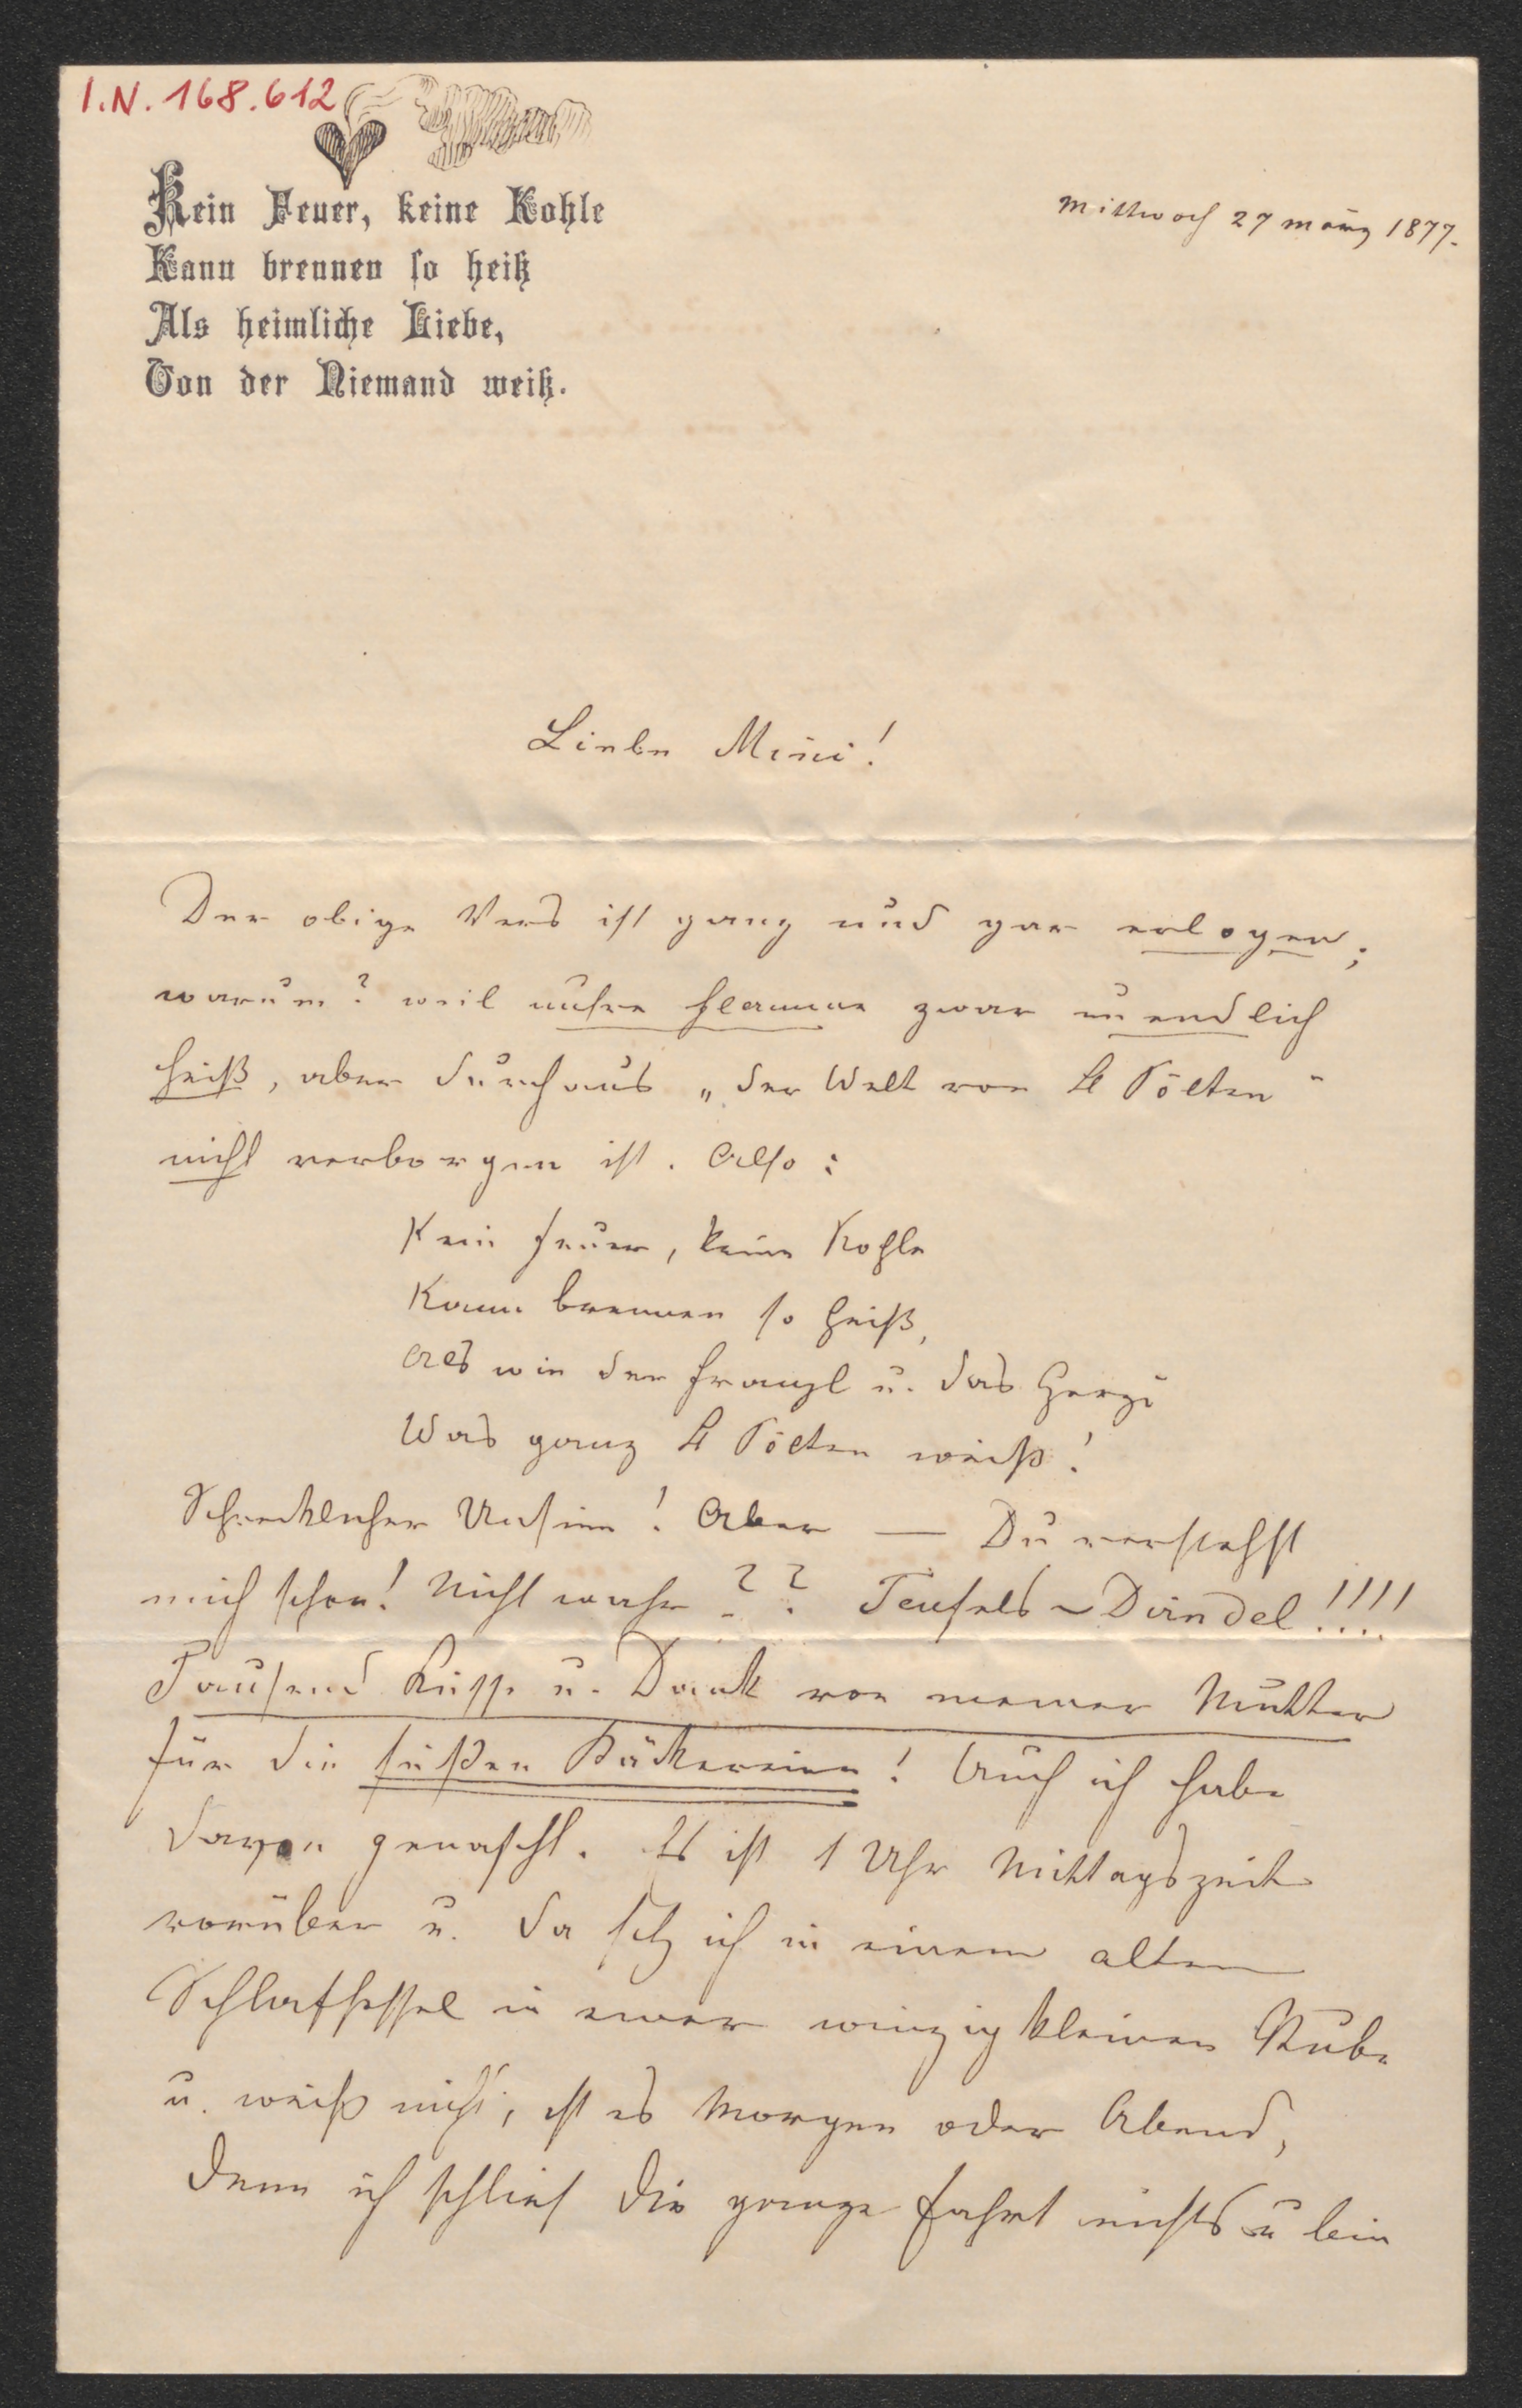 I.N. 168.612
Kein Feuer, keine Kohle
Kann brennen so heiß
Als heimliche Liebe,
Von der Niemand weiß.
Mittwoch 27 März 1877.
Liebe Mini!
Der obige Vers ist ganz und gar erlogen;
warum? weil unsre Flamme zwar unendlich
heiß, aber durchaus „der Welt von St Pölten“
nicht verborgen ist. Also:
Kein Feuer, keine Kohle
Kann brennen so heiß,
Als wie der Franzl u. das Herzi
Was ganz St Pölten weiß!
Schrecklicher Unsinn! Aber — Du verstehst
mich schon! Nicht wahr?? Teufels-Dirndel!!!!
Tausend Küsse u. Dank von meiner Mutter
für die süßen Bäckereien! Auch ich habe
davon genascht. Es ist 1 Uhr Mittagszeit
vorüber u. da sitz ich in einem alten
Schlafsessel in einer winzig kleinen Stube
u. weiß nicht, ist es Morgen oder Abend,
denn ich schlief die ganze Fahrt nichts u bin